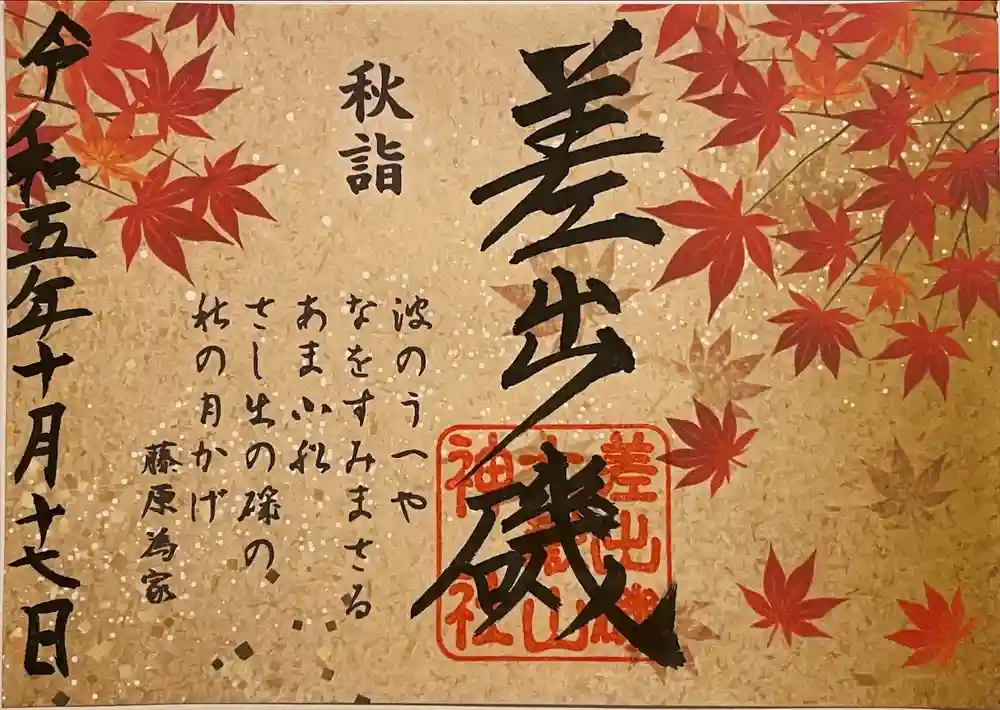 差出磯
差出磯
大嶽山
神社
秋詣
波のうへや
なをすみまさる
あま小船
さし出の磯の
秋の月かげ
藤原為家
令和五年十月十七日